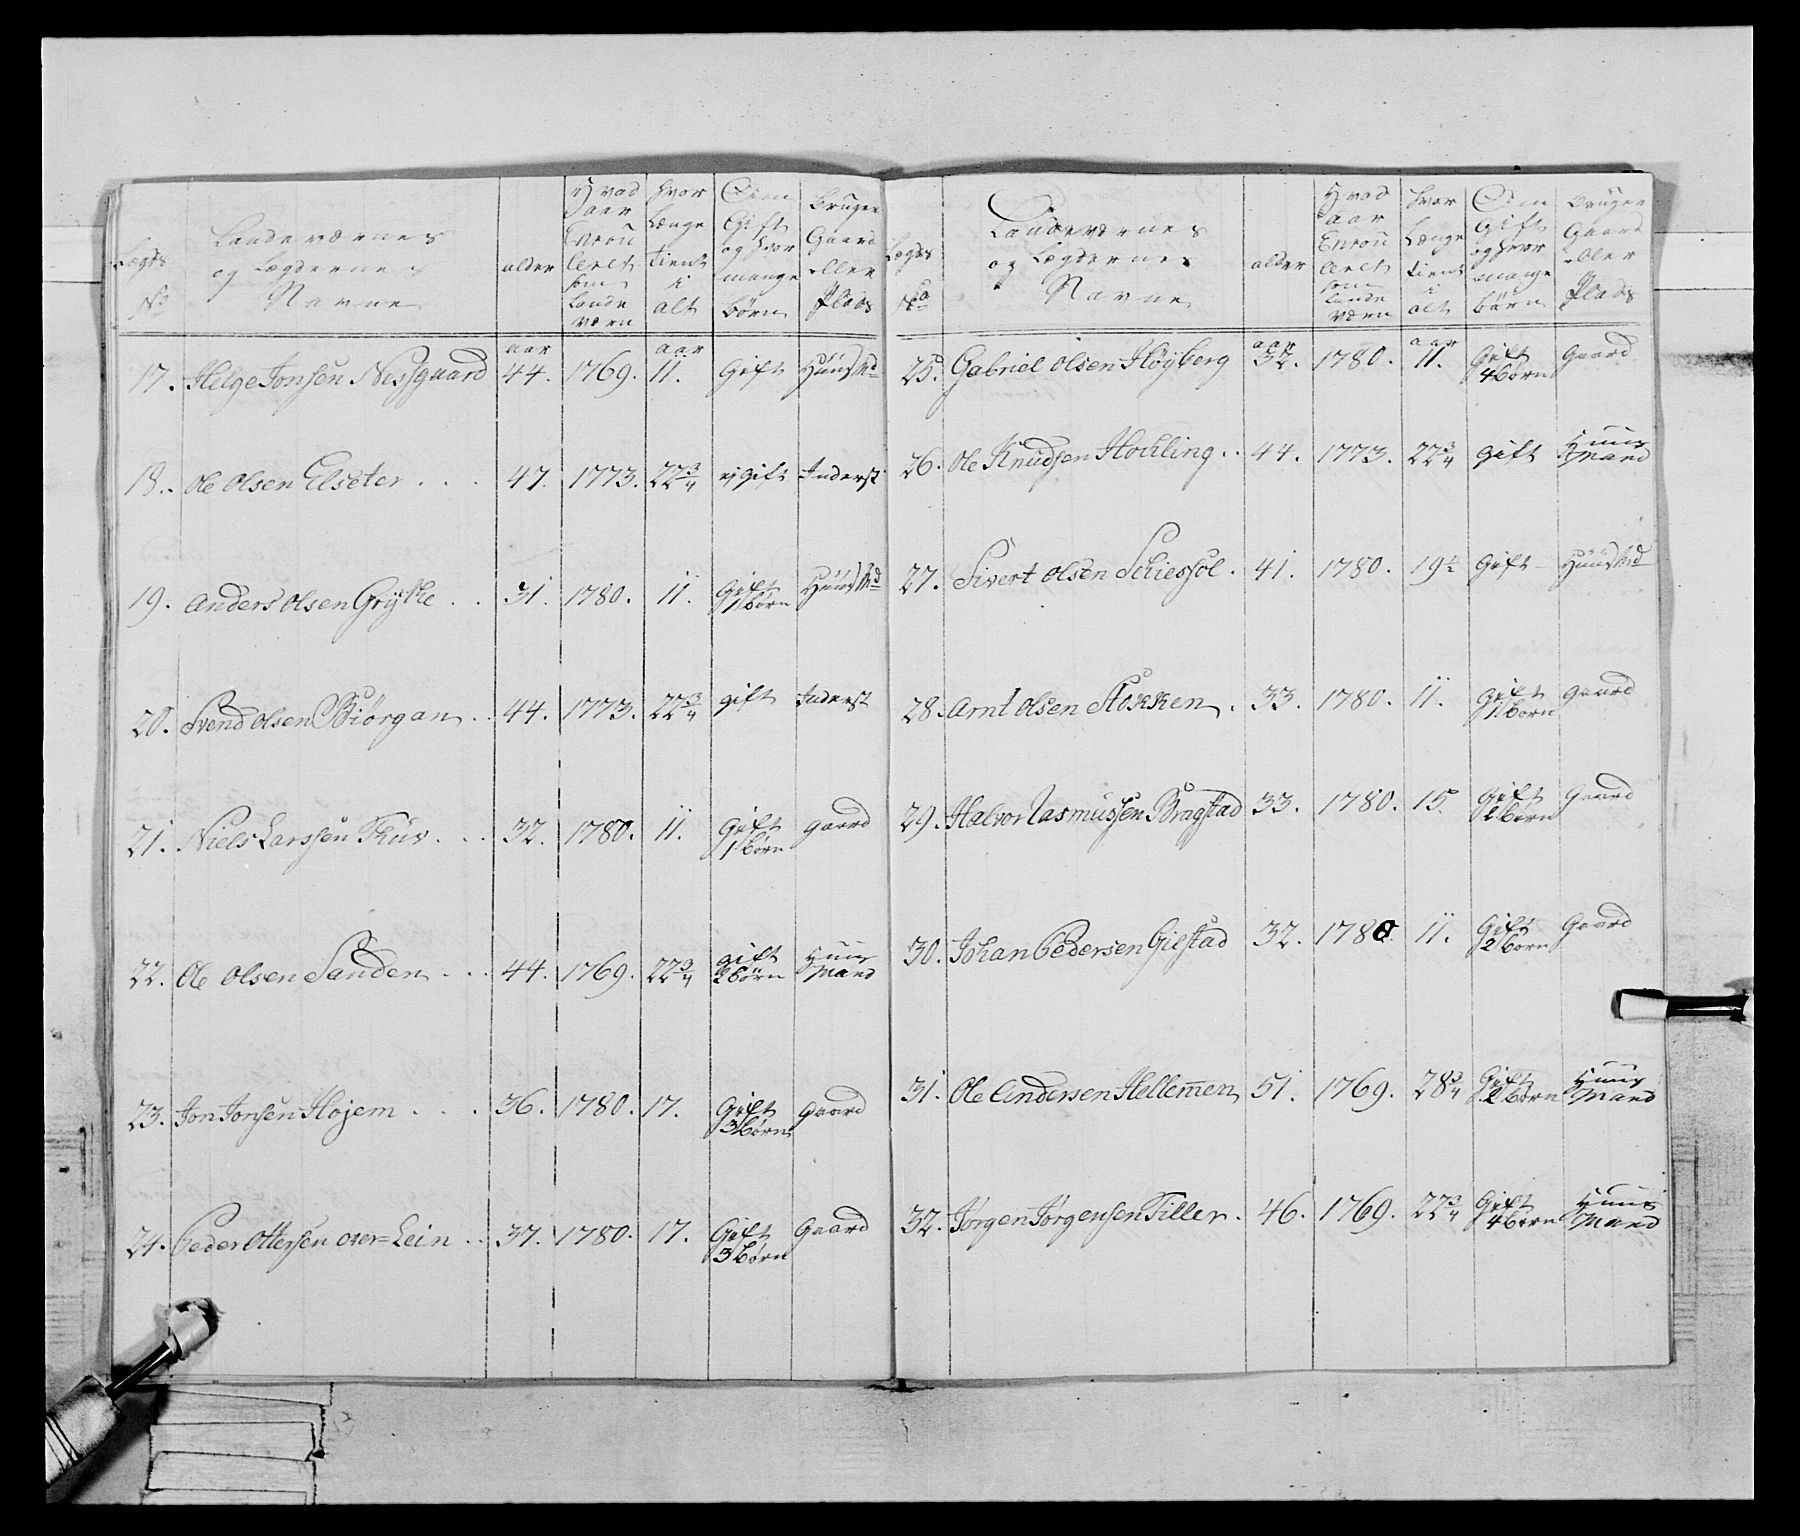 Lægds No | Landeværnes og Lægdernes Navne | alder | Hvad aar Enroulleret som Landeværn | hvor Længe tient i alt | Om Gift og hvor mange børn | bruger Gaard eller Plads
aar aar
17. Helge Jonsen Nessgaard 44. 1769. 11. Gift Huus Md
18. Ole Olsen Elseter 47. 1773. 22 3/4 ej Gift Inderst
19. Anders Olsen Grytte 31. 1780. 11. Gift 1 børn Huus Md
20. Svend Olsen Biörgan 44. 1773. 22 3/4 gift Inderst
21. Niels Larssen 32. 1780. 11. Gift 1 børn gaard
22. Ole Olsen Sanden 44. 1769. 22 3/4 gift 2 børn Huus Mand
23. Jon Jonsen Hojem 36. 1780. 17. Gift 3 børn gaard
24. Peder Ottersen over=Lein 37. 1780. 17. Gift 3 børn Gaard
Lægds No | Landeværnes og Lægdernes Navne | alder | Hvad aar Enroulleret som Landeværn | hvor Længe tient i alt | Om Gift og hvor mange børn | bruger Gaard eller Plads
aar aar
25. Gabriel Olsen Høyberg 32. 1780. 11. Gift 4 børn Gaard
26. Ole Knudsen Hockling 44. 1773. 22 3/4 gift Huus Mand
27. Sivert Olsen 41. 1780. 19 1/2 Gift Huus Md
28. Arnt Olsen Stokken 33. 1780. 11. Gift 1 born gaard
29. Halvor Rasmussen Bragstad 33. 1780. 15. Gift 2 børn Gaard
30. Johan Pedersen Gielstad 32. 1780. 11. Gift 2 born Gaard
31. Ole Andersen Hellemen 51. 1769. 28 3/4 Gift 2 børn Huus Mand
32. Jørgen Jørgensen Tiller 46. 1769. 22 3/4 Gift 4 børn Huus Mand